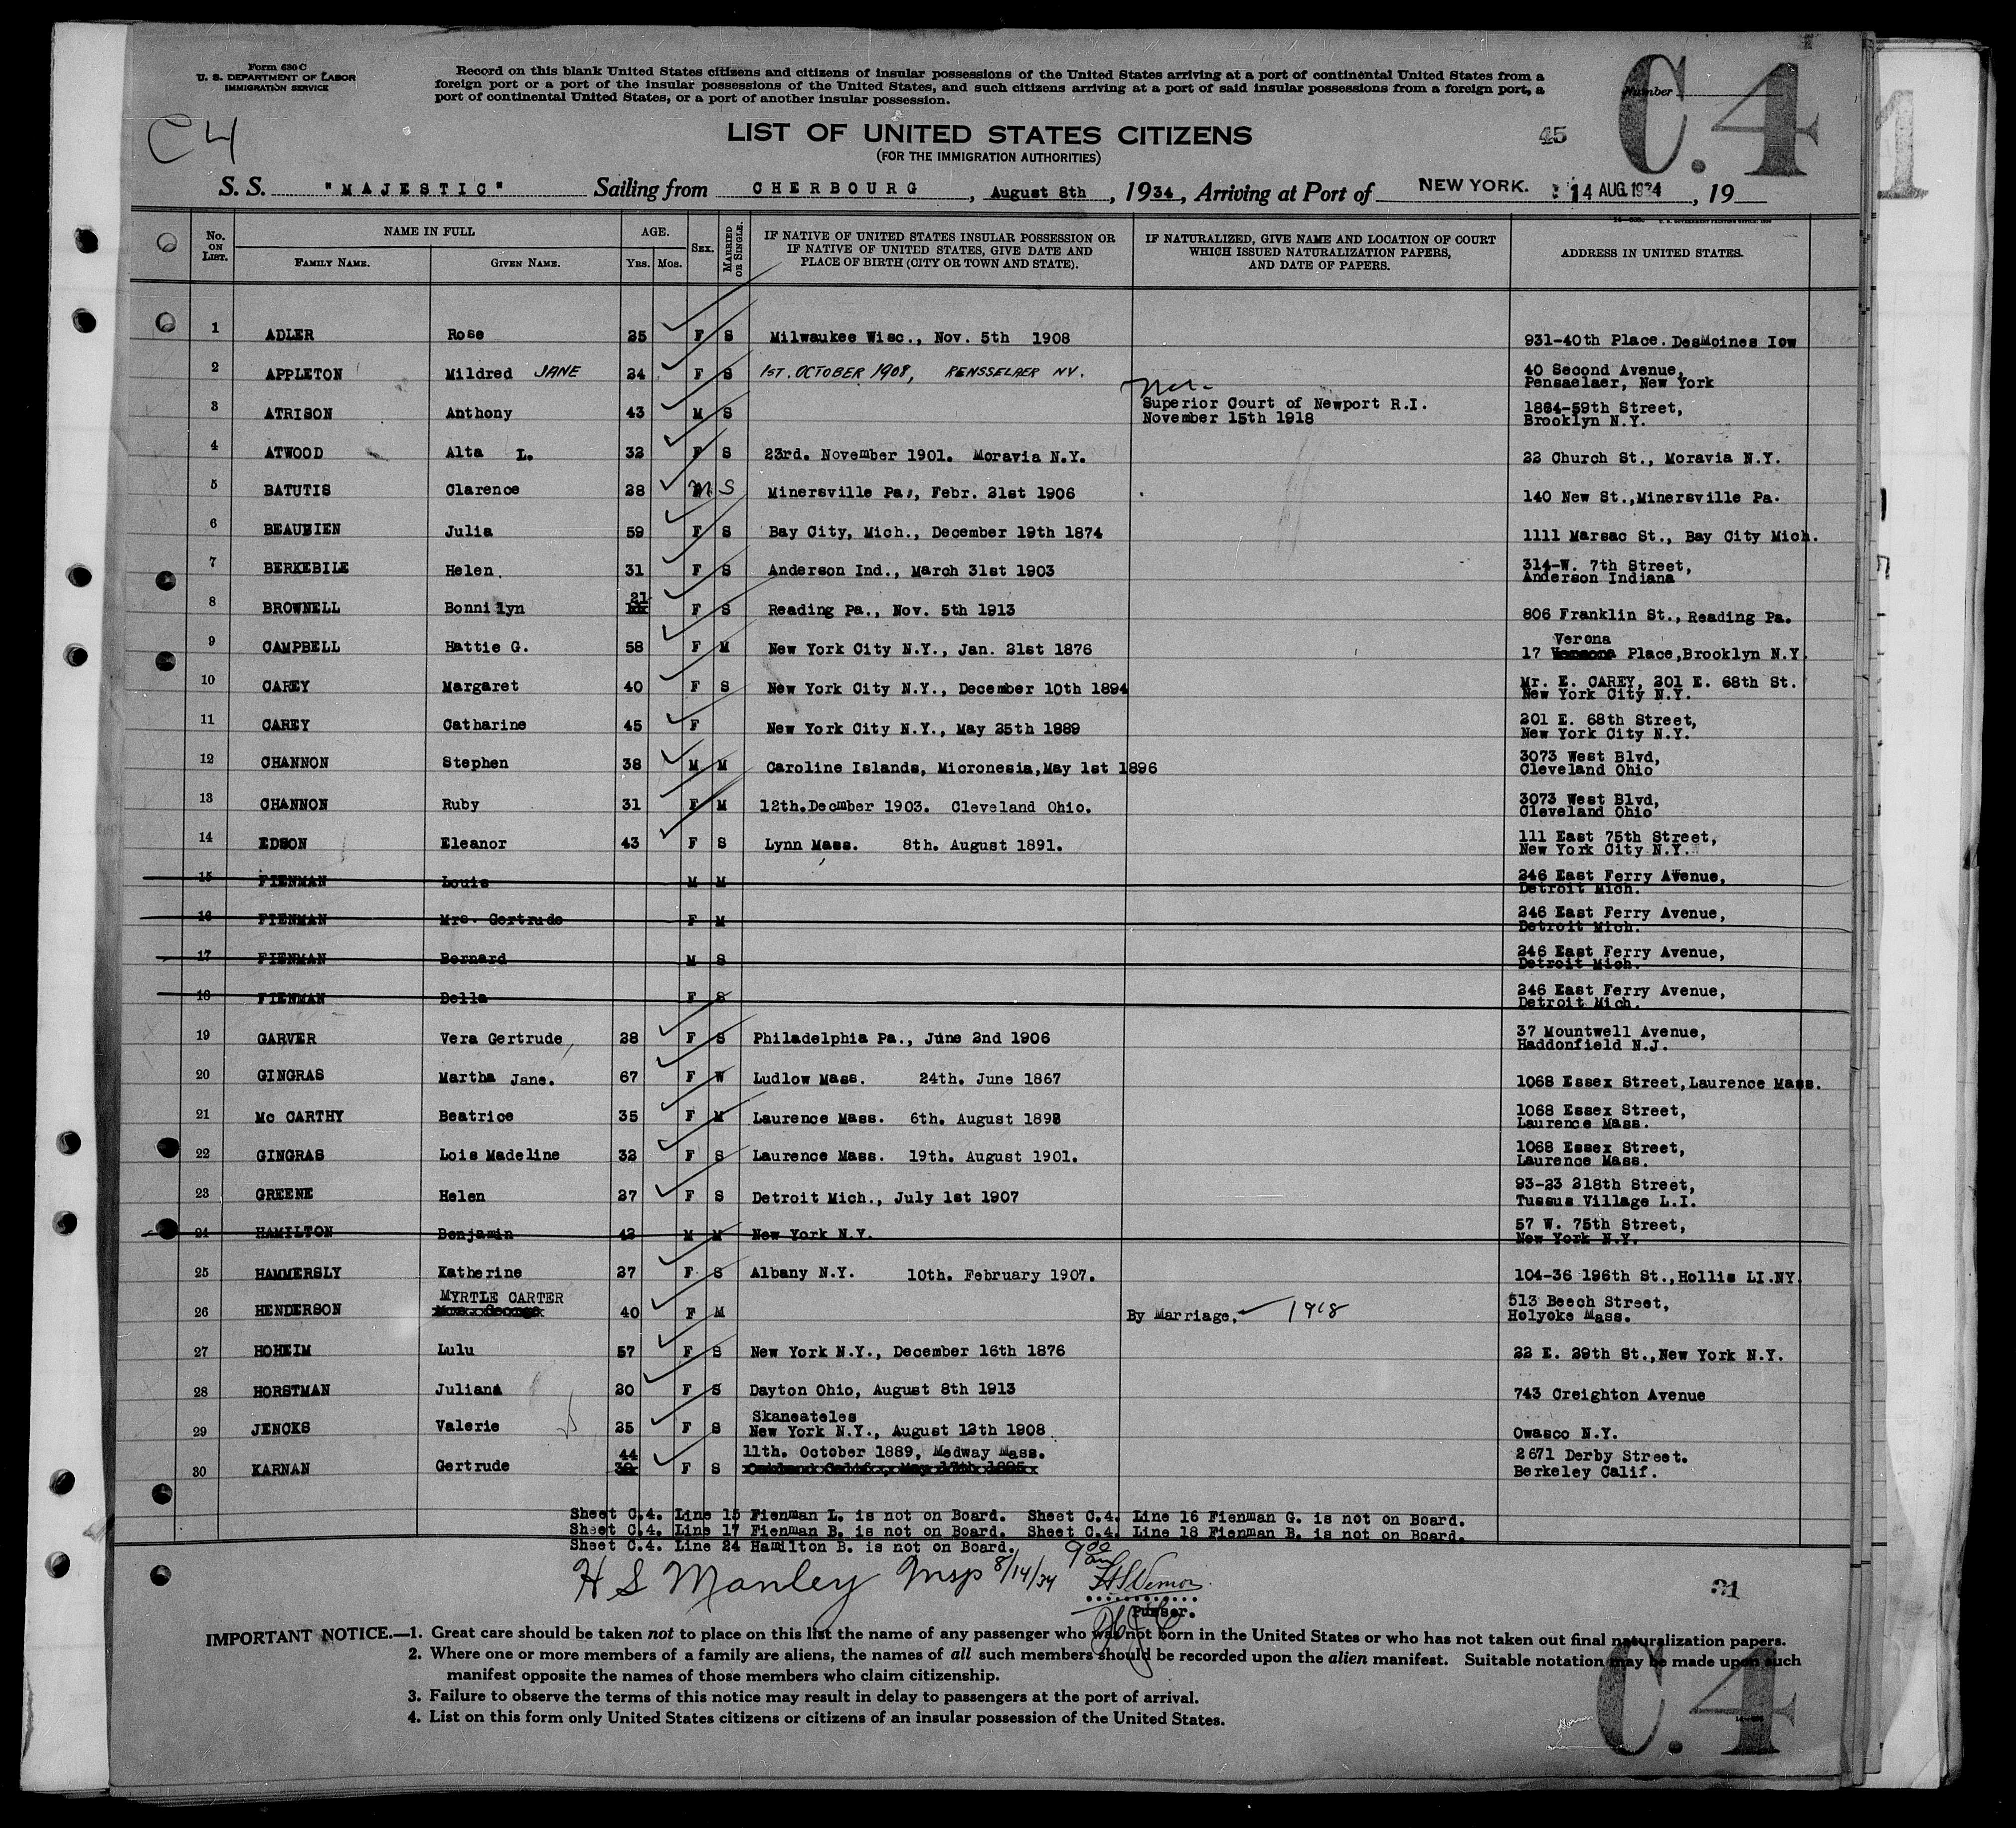 Form 630 C
U. S. DEPARTMENT OF LABOR
IMMIGRATION SERVICE
Record on this blank United States citizens and citizens of insular possessions of the United States arriving at a port of continental United States from a
foreign port or a port of the insular possessions of the United States, and such citizens arriving at a port of said insular possessions from a foreign port, a
port of continental United States, or a port of another insular possession.
Number
C.4
C4
LIST OF UNITED STATES CITIZENS
45
(FOR THE IMMIGRATION AUTHORITIES)
S. S. "MAJESTIC" Sailing from CHERBOURG, August 8th, 1934, Arriving at Port of NEW YORK. 14 AUG. 1934, 19
No. ON LIST. NAME IN FULL FAMILY NAME. GIVEN NAME. AGE. YRS. MOS. SEX. MARRIED OR SINGLE. IF NATIVE OF UNITED STATES INSULAR POSSESSION OR IF NATIVE OF UNITED STATES, GIVE DATE AND PLACE OF BIRTH (CITY OR TOWN AND STATE). IF NATURALIZED, GIVE NAME AND LOCATION OF COURT WHICH ISSUED NATURALIZATION PAPERS, AND DATE OF PAPERS. ADDRESS IN UNITED STATES.
1 ADLER Rose 25 F S Milwaukee Wisc., Nov. 5th 1908 931-40th Place. DesMoines Iow
2 APPLETON Mildred JANE 24 F S 1ST. OCTOBER 1908, RENSSELAER NY. 40 Second Avenue,
Pensaelaer, New York
3 ATRISON Anthony 43 M S Superior Court of Newport R.I. 1864-59th Street,
November 15th 1918 Brooklyn N.Y.
4 ATWOOD Alta L. 32 F S 23rd. November 1901. Moravia N.Y. 22 Church St., Moravia N.Y.
5 BATUTIS Clarence 28 M S Minersville Pa., Febr. 21st 1906 140 New St.,Minersville Pa.
6 BEAUBIEN Julia 59 F S Bay City, Mich., December 19th 1874 1111 Marsac St., Bay City Mich.
7 BERKEBILE Helen. 31 F S Anderson Ind., March 31st 1903 314-W. 7th Street,
Anderson Indiana
8 BROWNELL Bonnilyn 21 F S Reading Pa., Nov. 5th 1913 806 Franklin St., Reading Pa.
9 CAMPBELL Hattie G. 58 F M New York City N.Y., Jan. 21st 1876 Verona
17 Place,Brooklyn N.Y.
10 CAREY Margaret 40 F S New York City N.Y., December 10th 1894 Mr. E. CAREY, 201 E. 68th St.
New York City N.Y.
11 CAREY Catharine 45 F New York City N.Y., May 25th 1889 201 E. 68th Street,
New York City N.Y.
12 CHANNON Stephen 38 M M Caroline Islands, Micronesia,May 1st 1896 3073 West Blvd,
Cleveland Ohio
13 CHANNON Ruby 31 F M 12th.Decmber 1903. Cleveland Ohio. 3073 West Blvd,
Cleveland Ohio
14 EDSON Eleanor 43 F S Lynn Mass. 8th. August 1891. 111 East 75th Street,
New York City N.Y.
15 FIENMAN Louis M M 246 East Ferry Avenue,
Detroit Mich.
16 FIENMAN Mrs. Gertrude F M 246 East Ferry Avenue,
Detroit Mich.
17 FIENMAN Bernard M S 246 East Ferry Avenue,
Detroit Mich.
18 FIENMAN Bella F S 246 East Ferry Avenue,
Detroit Mich.
19 GARVER Vera Gertrude 28 F S Philadelphia Pa., June 2nd 1906 37 Mountwell Avenue,
Haddonfield N.J.
20 GINGRAS Martha Jane. 67 F W Ludlow Mass. 24th. June 1867 1068 Essex Street,Laurence Mass.
21 Mc CARTHY Beatrice 35 F M Laurence Mass. 6th. August 1898 1068 Essex Street,
Laurence Mass.
22 GINGRAS Lois Madeline 32 F S Laurence Mass. 19th. August 1901. 1068 Essex Street,
Laurence Mass.
23 GREENE Helen 27 F S Detroit Mich., July 1st 1907 93-23 218th Street,
Tussus Village L.I.
24 HAMILTON Benjamin 42 M M New York N.Y. 57 W. 75th Street,
New York N.Y.
25 HAMMERSLY Katherine 27 F S Albany N.Y. 10th. February 1907. 104-36 196th St.,Hollis LI.NY.
26 HENDERSON MYRTLE CARTER 40 F M By Marriage. 1918 513 Beech Street,
Mrs. George Holyoke Mass.
27 HOHEIM Lulu 57 F S New York N.Y., December 16th 1876 22 E. 29th St.,New York N.Y.
28 HORSTMAN Juliana 20 F S Dayton Ohio, August 8th 1913 743 Creighton Avenue
29 JENCKS Valerie 25 F S Skaneateles
New York N.Y., August 12th 1908 Owasco N.Y.
30 KARNAN Gertrude 44 F S 11th. October 1889, Medway Mass. 2671 Derby Street.
39 Oakland Calif., May 17th 1895 Berkeley Calif.
Sheet C.4. Line 15 Fienman L. is not on Board. Sheet C.4. Line 16 Fienman G. is not on Board.
Sheet C.4. Line 17 Fienman B. is not on Board. Sheet C.4. Line 18 Fienman B. is not on Board.
Sheet C.4. Line 24 Hamilton B. is not on Board.
H S Manley Insp 8/14/34
Purser.
IMPORTANT NOTICE.—1. Great care should be taken not to place on this list the name of any passenger who was not born in the United States or who has not taken out final naturalization papers.
2. Where one or more members of a family are aliens, the names of all such members should be recorded upon the alien manifest. Suitable notation may be made upon such
manifest opposite the names of those members who claim citizenship.
3. Failure to observe the terms of this notice may result in delay to passengers at the port of arrival.
4. List on this form only United States citizens or citizens of an insular possession of the United States.
C.4